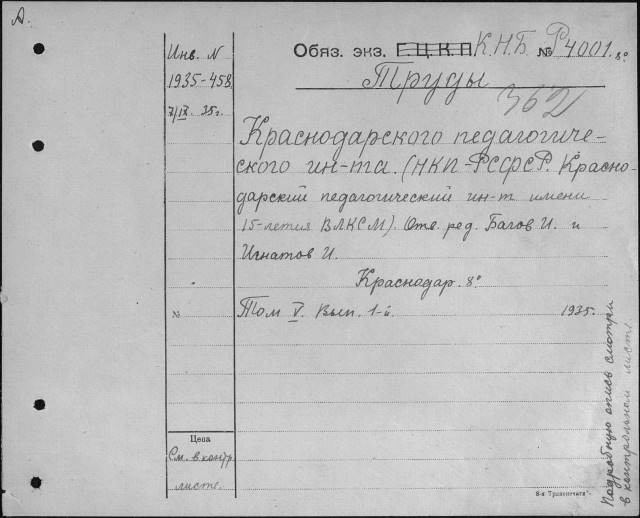 А.
Инв. N
1935-458
7/IX. 35г.
Обяз. экз. Г.Ц.К.П К.Н.Б. № Р4001. 8°
Труды
362
Краснодарского педагогиче-
ского ин-та. (НКП-РСФСР. Красно-
дарский педагогический ин-т имени
15-летия ВЛКСМ). Отв. ред. Багов И. и
Игнатов И.
Краснодар. 8°
№ Том V. Вып. 1-й. 1935.
Цена
См. в контр.
листе.
8-я Трансмечати".
Подробную опись смотри
в контрольном листе